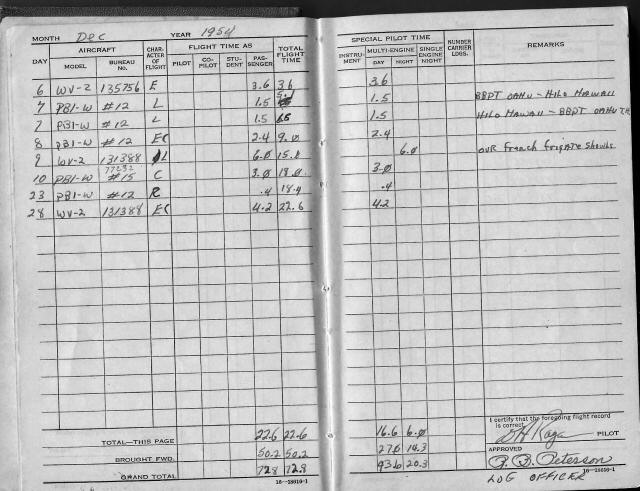 MONTH Dec YEAR 1954
DAY AIRCRAFT MODEL BUREAU No. CHARACTER OF FLIGHT FLIGHT TIME AS PILOT CO-PILOT STUDENT PASSENGER TOTAL FLIGHT TIME
6 WV-2 135756 E 3.6 3.6
7 PB1-W #12 L 1.5 5.1
7 PB1-W #12 L 1.5
8 PB1-W #12 EC 2.4 9.0
9 WV-2 131388 L 6.0 15.0
77232
10 PB1-W #15 C 3.0 18.0
23 PB1-W #12 R .4 18.4
28 WV-2 131388 EC 4.2 22.6
TOTAL—THIS PAGE 22.6 22.6
BROUGHT FWD. 50.2 50.2
GRAND TOTAL 72.8 72.8
SPECIAL PILOT TIME INSTRUMENT MULTI-ENGINE DAY NIGHT SINGLE ENGINE NIGHT NUMBER CARRIER LDGS. REMARKS
3.6
1.5 BBPT OAHU - HILO HAWAII
1.5 HILO HAWAII - BBPT OAHU T.H.
2.4
6.0 OUR French frigate Shoals
3.0
.4
4.2
I certify that the foregoing flight record is correct.
16.6 6.0 PILOT
27.0 14.3 APPROVED
43.6 20.3 Peterson
LOG OFFICER